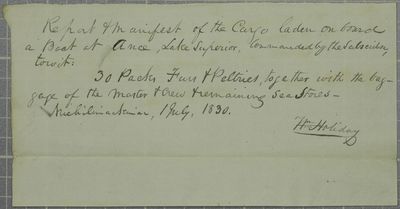 Report & Manifest of the Cargo laden on board
a Boat at Ance Lake Superior, Commanded by the Subscriber,
towit:
30 Packs Furs & Peltries, together with the bag-
gage of the Master & Crew & remaining Sea Stores -
Michilimackinac, 1 July, 1830.
Wm Holiday